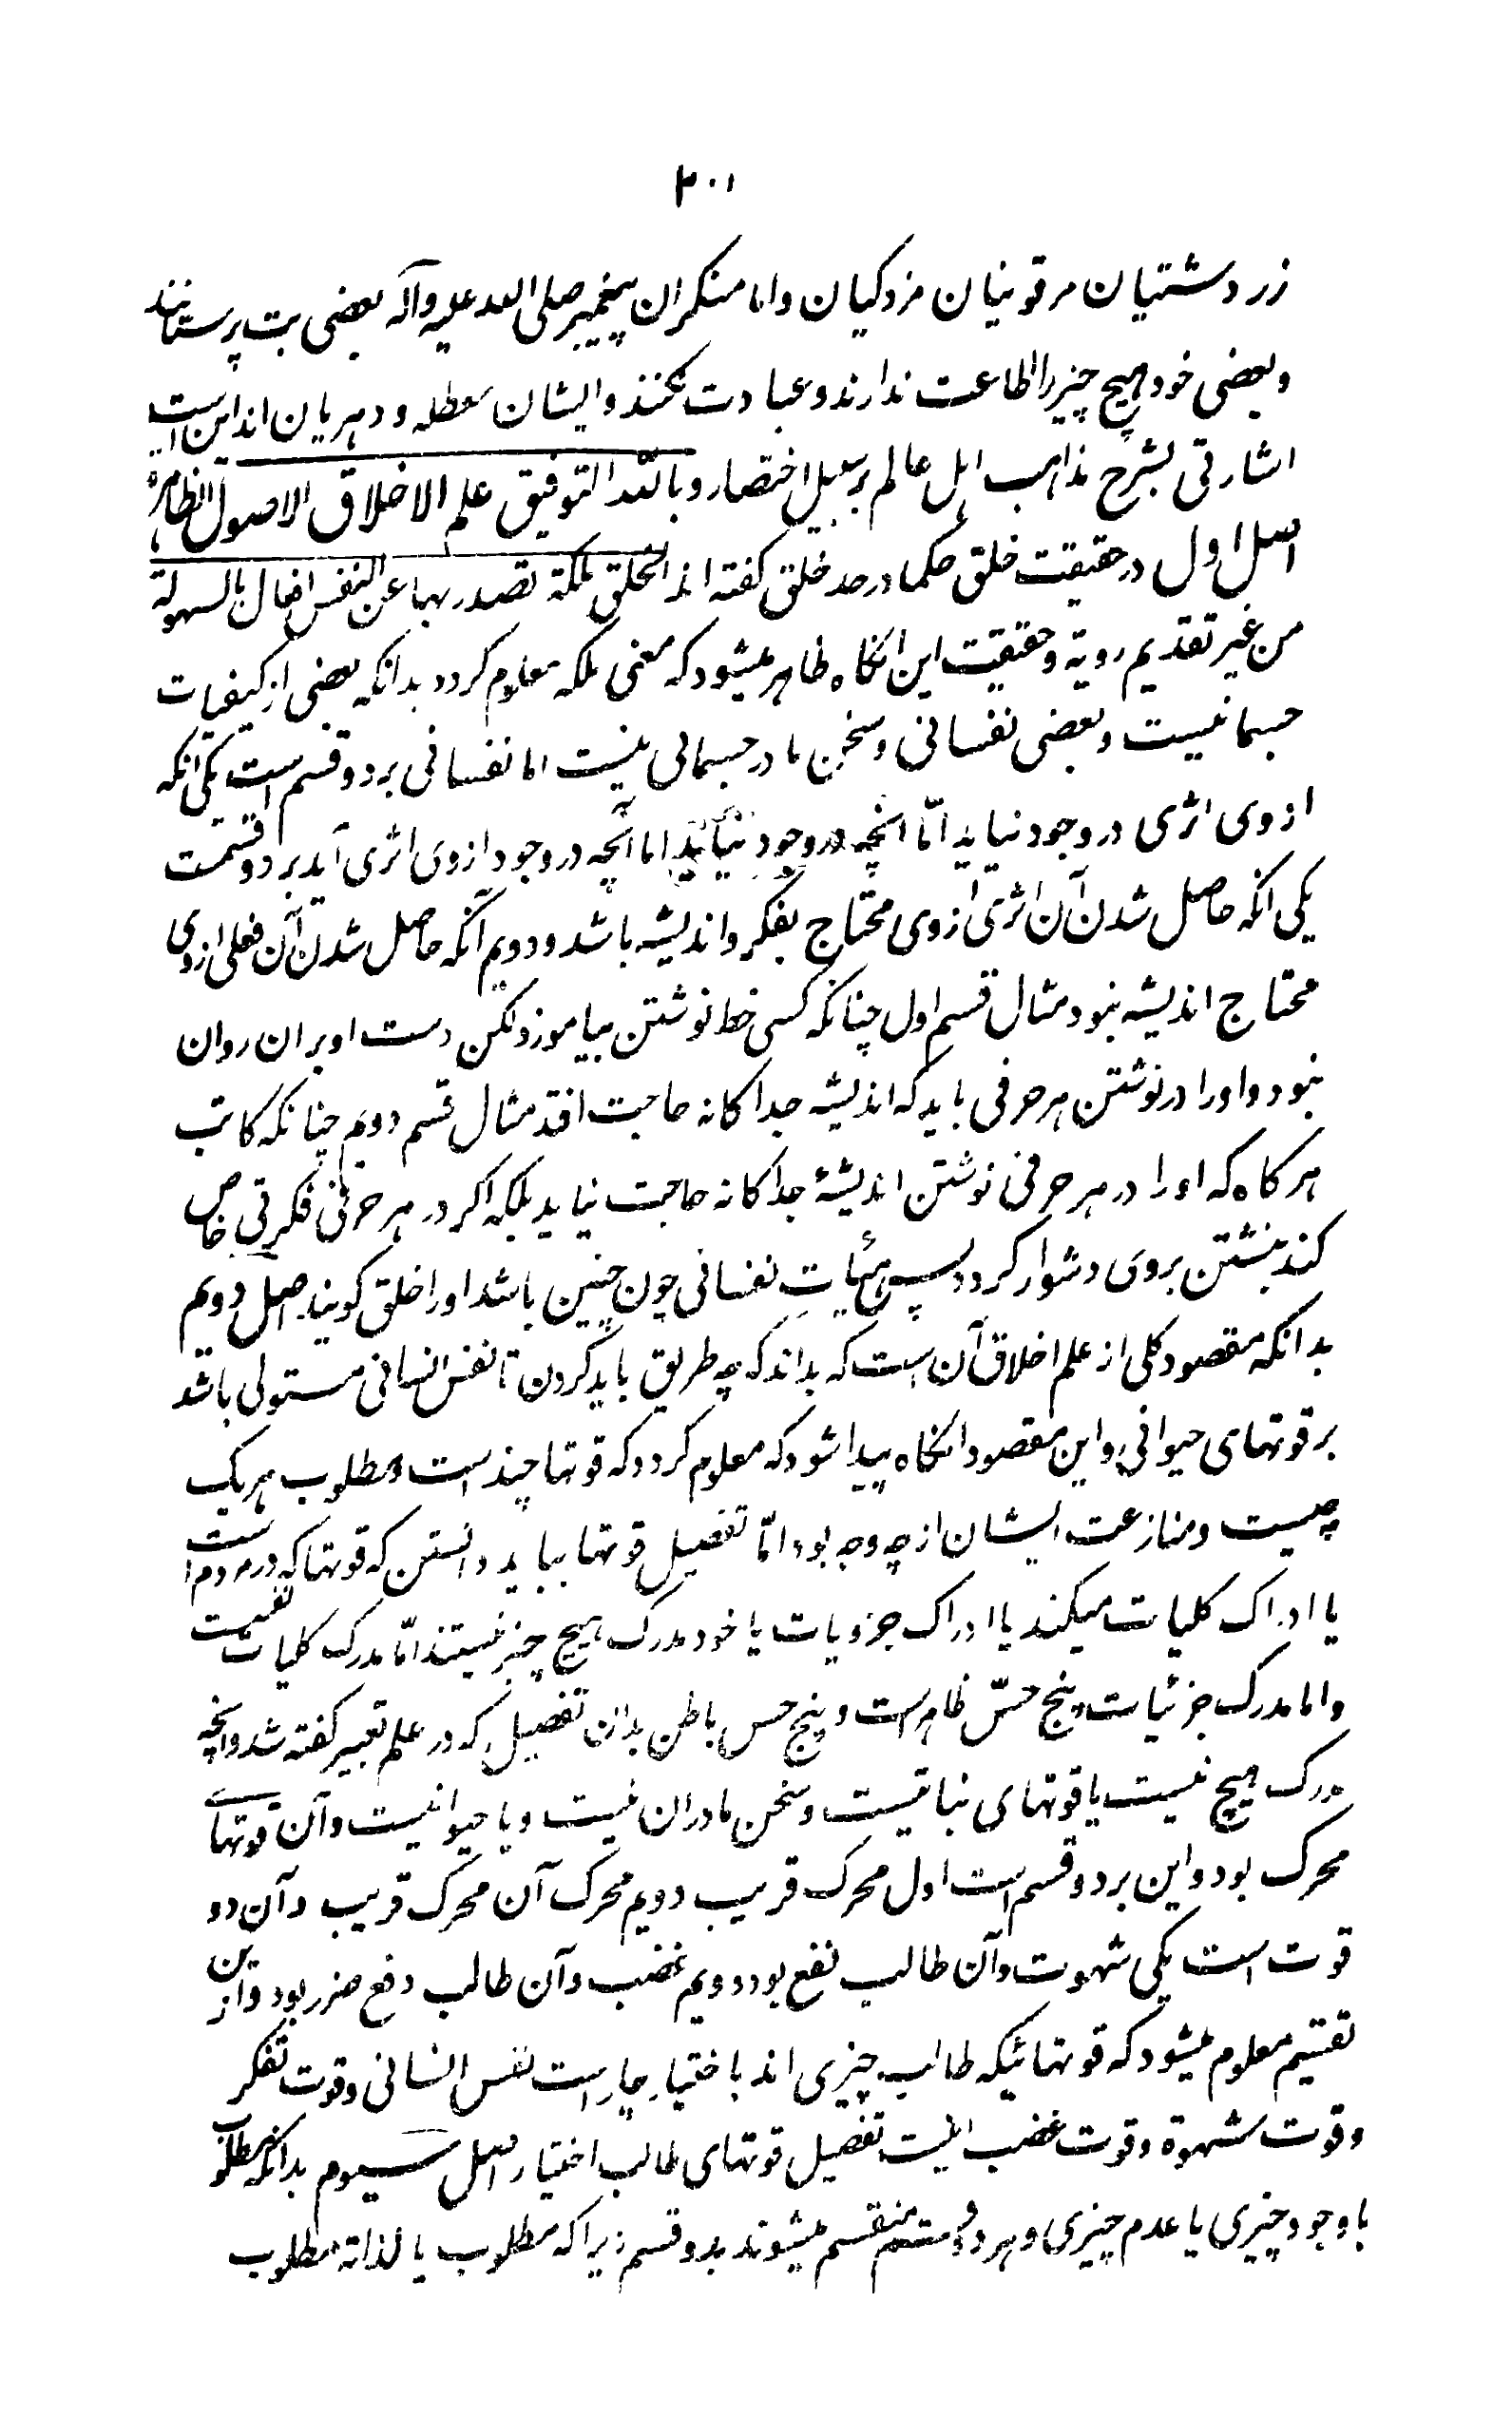 ۲۰۱
زردشتیان مرقونیان مزدکیان واما منکران پیغمبر صلی الله علیه وآله بعضی بت پرستانند
وبعضی خود هیچ چیز را طاعت ندارند وعبادت نکنند وایشان معطله ودهریان اند این است
اشارتی بشرح مذاهب اهل عالم بر سبیل اختصار وبالله التوفیق علم الاخلاق الاصول الظاهرة
اصل اول در حقیقت خلق حکما در حد خلق کفته اند الخلق ملکة تصدر بها عن النفس افعال بالسهولة
من غیر تقدیم رویة وحقیقت این انکاه ظاهر میشود که معنی ملکه معلوم کردد بدانکه بعضی از کیفیات
جسمانیست وبعضی نفسانی وسخن ما در جسمانی نیست اما نفسانی بر دو قسم است یکی انکه
از وی اثری در وجود نیاید امّا انچه در وجود نیاید اما آنچه در وجود از وی اثری آید بر دو قسمت
یکی انکه حاصل شدن آن اثری از وی محتاج بفکر واندیشه باشد ودویم آنکه حاصل شدن آن فعلی از وی
محتاج اندیشه نبود مثال قسم اول چنانکه کسی خط نوشتن بیاموزد لکن دست او بران روان
نبود واورا در نوشتن هر حرفی باید که اندیشه جداکانه حاجت افتد مثال قسم دویم چنانکه کاتب
هر کاه که اورا در هر حرفی نوشتن اندیشهٔ جداکانه حاجت نیاید بلکه اکر در هر حرفی فکرتی خاص
کند بنشتن بروی دشوار کردد پس هیٔات نفسانی چون چنین باشد اورا خلق کویند اصل دویم
بدانکه مقصود کلی از علم اخلاق آن است که بداند که چه طریق باید کردن تا نفس انسانی مستولی باشد
بر قوتهای حیوانی واین مقصود انکاه پیدا شود که معلوم کردد که قوتها چند است ومطلوب هریک
چیست ومنازعت ایشان از چه وجه بود امّا تفصیل قوتها بباید دانستن که قوتها که در مردم است
یا ادراک کلیات میکند یا ادراک جزویات یا خود مدرک هیچ چیز نیستند امّا مدرک کلیات نفسیت
واما مدرک جزئیات پنج حسّ ظاهر است وپنج حس باطن بدان تفصیل که در علم تعبیر کفته شد وانچه
مدرک هیچ نیست یا قوتهای نباتیست وسخن ما دران نیست ویا حیوانیست وآن قوتهای
محرک بود واین بر دو قسم است اول محرک قریب دویم محرک آن محرک قریب وآن دو
قوت است یکی شهوت وآن طالب نفع بود دویم غضب وآن طالب دفع ضرر بود واز این
تقسیم معلوم میشود که قوتهائیکه طالب چیزی اند باختیار چهار است نفس انسانی وقوت تفکر
وقوت شهوة وقوت غضب اینست تفصیل قوتهای طالب اختیار اصل سیوم بدانکه مطلوب
یا وجود چیزی یا عدم چیزی وهر دو قسم منقسم میشوند بدو قسم زیراکه مطلوب یا لذاته مطلوب